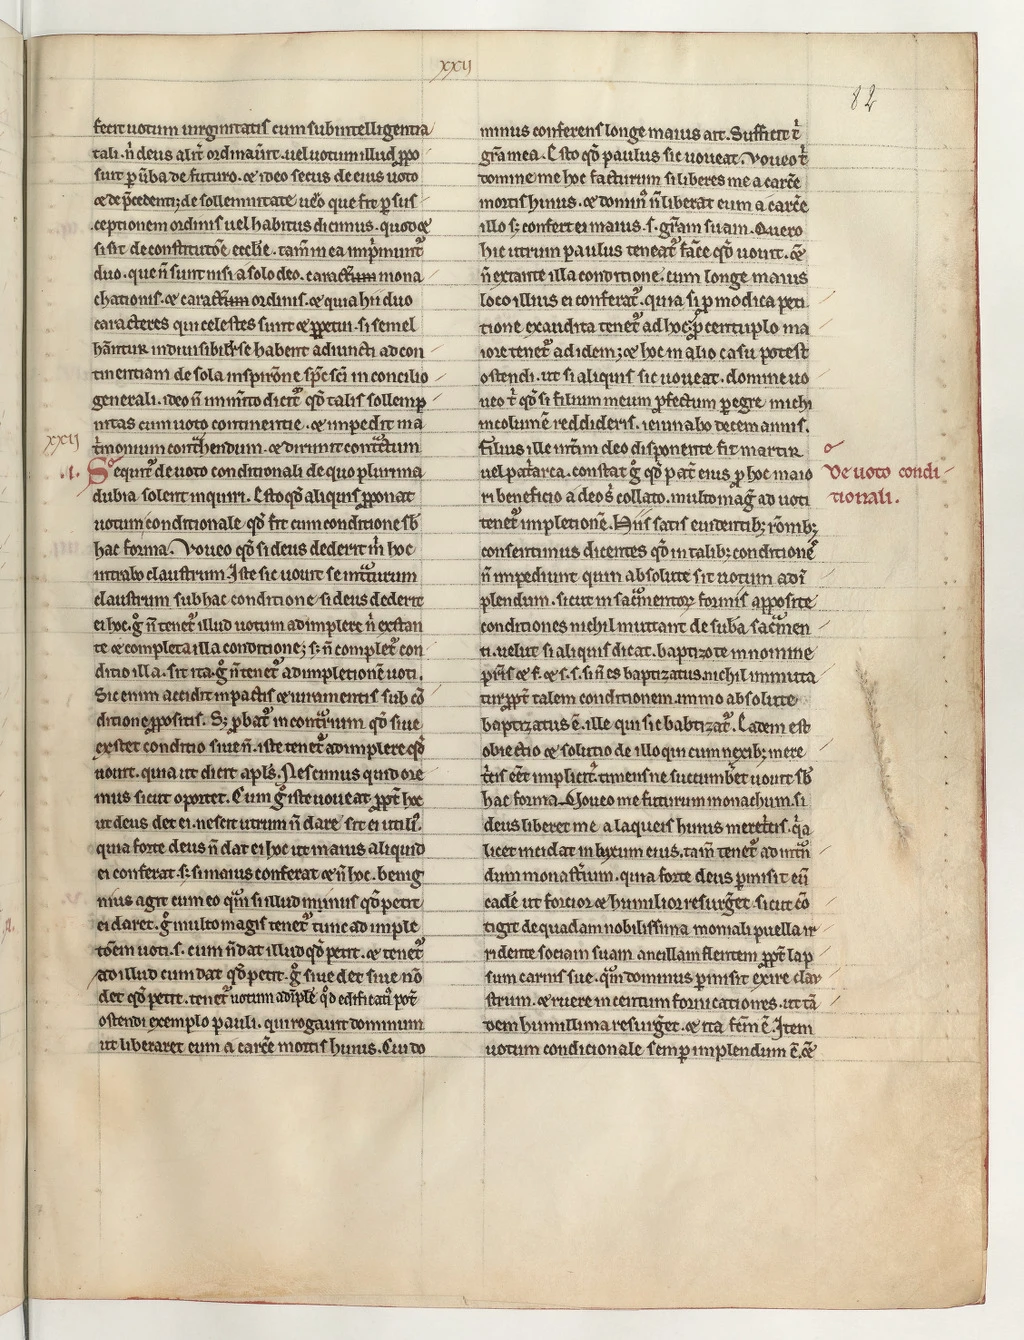 xxij
82
fecit uotum uirginitatis cum subintelligentia
tali. nͥ deus alit̾ ordinau̾it. uel uotum illud ꝓpo
suit ꝑ ůba de futuro. ⁊ ideo secus de eius uoto
⁊ de p̾cedenti; de sollemnitate ůo que fit ꝑ sus
ceptionem ordinis uel habitus dicimus. quod ⁊
si sit de constitutōe ecclīe. tam̄ in ea inp̾munt᷑
duo. que n̄ sunt nisi a solo deo. mona
chationis. ⁊ ordinis. ⁊ quia hii duo
caracteres qui celestes sunt ⁊ ꝑpetui. si semel
se habent adiuncti ad con
tinentiam de sola inspirōne sp̄c sc̄i in concilio
generali. ideo n̄ inmīto dicit᷑ qd̄ talis sollemp
nitas cum uoto continentie. ⁊ impedit ma
t̾monium cont̾hendum. ⁊ dirimit cont̾ctum
xxij
.i. Sequit᷑ de uoto conditionali de quo plurima
dubia solent inquiri. Esto qd̄ aliquis ꝓponat
uotum conditionale qd̄ fit cum conditione sb̄
hac forma. Voueo qd̄ si deus dederit m̄ hoc
intrabo claustrum. Iste sic uouit se int̾turum
claustrum sub hac conditione si deus dederit
ei hoc. gͦ n̄ tenet᷑ illud uotum adimplere n̄ exstan
te ⁊ completa illa conditione; s; n̄ complet᷑ con
ditio illa. sit ita. gͦ n̄ tenet᷑ ad impletionē uoti.
Sic enim accidit in pactis ⁊ iuramentis sub cō
ditione ꝓpositis. S; ꝓbat᷑ in cont̾rium qd̄ siue
exstet conditio siue n̄. iste tenet᷑ adimplere qd̄
uouit. quia ut dicit apl̄s. Nescimus quid ore
mus sicut oportet. Cum gͦ iste uoueat ꝓpt̾ hoc
ut deus det ei. nescit utrum n̄ dare sit ei utili᷒.
quia forte deus n̄ dat ei hoc ut maius aliquid
ei conferat. s; si maius conferat ⁊ n̄ hoc. benig
nius agit cum eo qm̄ si illud minus qd̄ petit
ei daret. gͦ multo magis tenet᷑ tunc ad imple
tōem uoti. s. cum n̄ dat illud qd̄ petit. ⁊ tenet᷑
ad illud cum dat qd̄ petit. gͦ siue det siue nō
det qd̄ petit. tenet᷑ uotum adīple
ostendi exemplo pauli. qui rogauit dominum
ut liberaret eum a carc̄e mortis huius. Cui do
minus conferens longe maius ait. Sufficit t̄
gr̄a mea. Esto qd̄ paulus sic uoueat. Voueo t̄
domine me hoc facturum si liberes me a carc̄e
mortis huius. ⁊ domin᷒ n̄ liberat eum a carc̄e
illo s; confert ei maius. s. gr̄am suam. Quero
hic utrum paulus teneat᷑ fac̄e qd̄ uouit. ⁊
n̄ extante illa conditione. cum longe maius
loco illius ei conferat᷑. quia si ꝓ modica peti
tione exaudita tenet᷑ ad hoc; ꝓ centuplo ma
iore tenet᷑ ad idem; ⁊ hoc in alio casu potest
ostendi. ut si aliquis sic uoueat. domine uo
ueo t̄ qd̄ si filium meum ꝓfectum peregre michi
incolumē reddideris. ieiunabo decem annis.
filius ille int̾im deo disponente fit martir
uel pat̾arca. constat gͦ qd̄ pat̾ eius ꝓ hoc maio
De uoto condi
ri beneficio a deo s; collato. multo mag̾ ad uoti
tionali.
tenet᷑ impletionē. Hiis satis euidentib; rōnib;
consentimus dicentes qd̄ in talib; conditiones
n̄ impediunt quin absolute sit uotum adī
plendum. sicut in sac̾mentoꝝ formis apposite
conditiones nichil mutant de suba sac̾men
ti. uelut si aliquis dicat. baptizo te in nomine
pr̄is ⁊ f. ⁊ s. s. si n̄ es baptizatus. nichil inmuta
tur ꝓpt̾ talem conditionem. immo absolute
baptizatus ē. ille qui sic babtizat᷑. Eadem est
obiectio ⁊ solutio de illo qui cum nexib; mere
t̾cis eēt implicit᷒. timens ne succumbet uouit sb̄
hac forma. Voueo me futurum monachum. si
deus liberet me a laqueis huius meret̾cis. q̾a
licet incidat in luxum eius. tam̄ tenet᷑ ad int̾n
dum monast̾ium. quia forte deus ꝑmisit eū
cade̾ ut fortior ⁊ humilior resurg̾et. sicut cō
tigit de quadam nobilissima moniali puella ir
ridente sociam suam ancillam flentem ꝓpt̾ lap
sum carnis sue. qm̄ dominus ꝑmisit exire clau
strum. ⁊ ruere in cenum fornicationes. ut tā
dem humillima resurg̾et. ⁊ ita fc̄m ē. Item
uotum condicionale semp implendum ē. ⁊